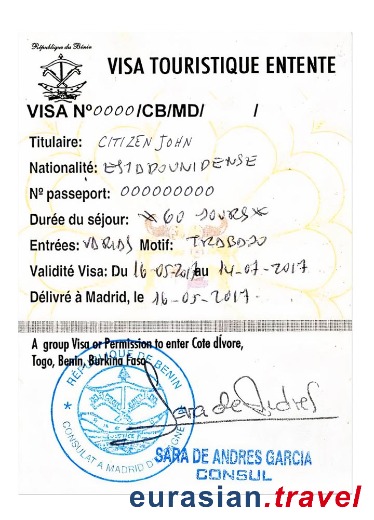 République du Bénin
VISA TOURISTIQUE ENTENTE
VISA Nº0000/CB/MD/ /
Titulaire: CITIZEN JOHN
Nationalité: ESTADOUNIDENSE
Nº passeport: 000000000
Durée du séjour: *60 JOURS*
Entrées: VARIAS Motif: TRABAJO
Validité Visa: Du 16-05-2017 au 14-07-2017
Délivré à Madrid, le 16-05-2017.
A group Visa or Permission to enter Cote dÍvore,
Togo, Benin, Burkina Faso
RÉPUBLIQUE DU BENIN
CONSULAT A MADRID D'ESPAGNE
Sara de Andres
SARA DE ANDRES GARCIA
CONSUL
eurasian.travel